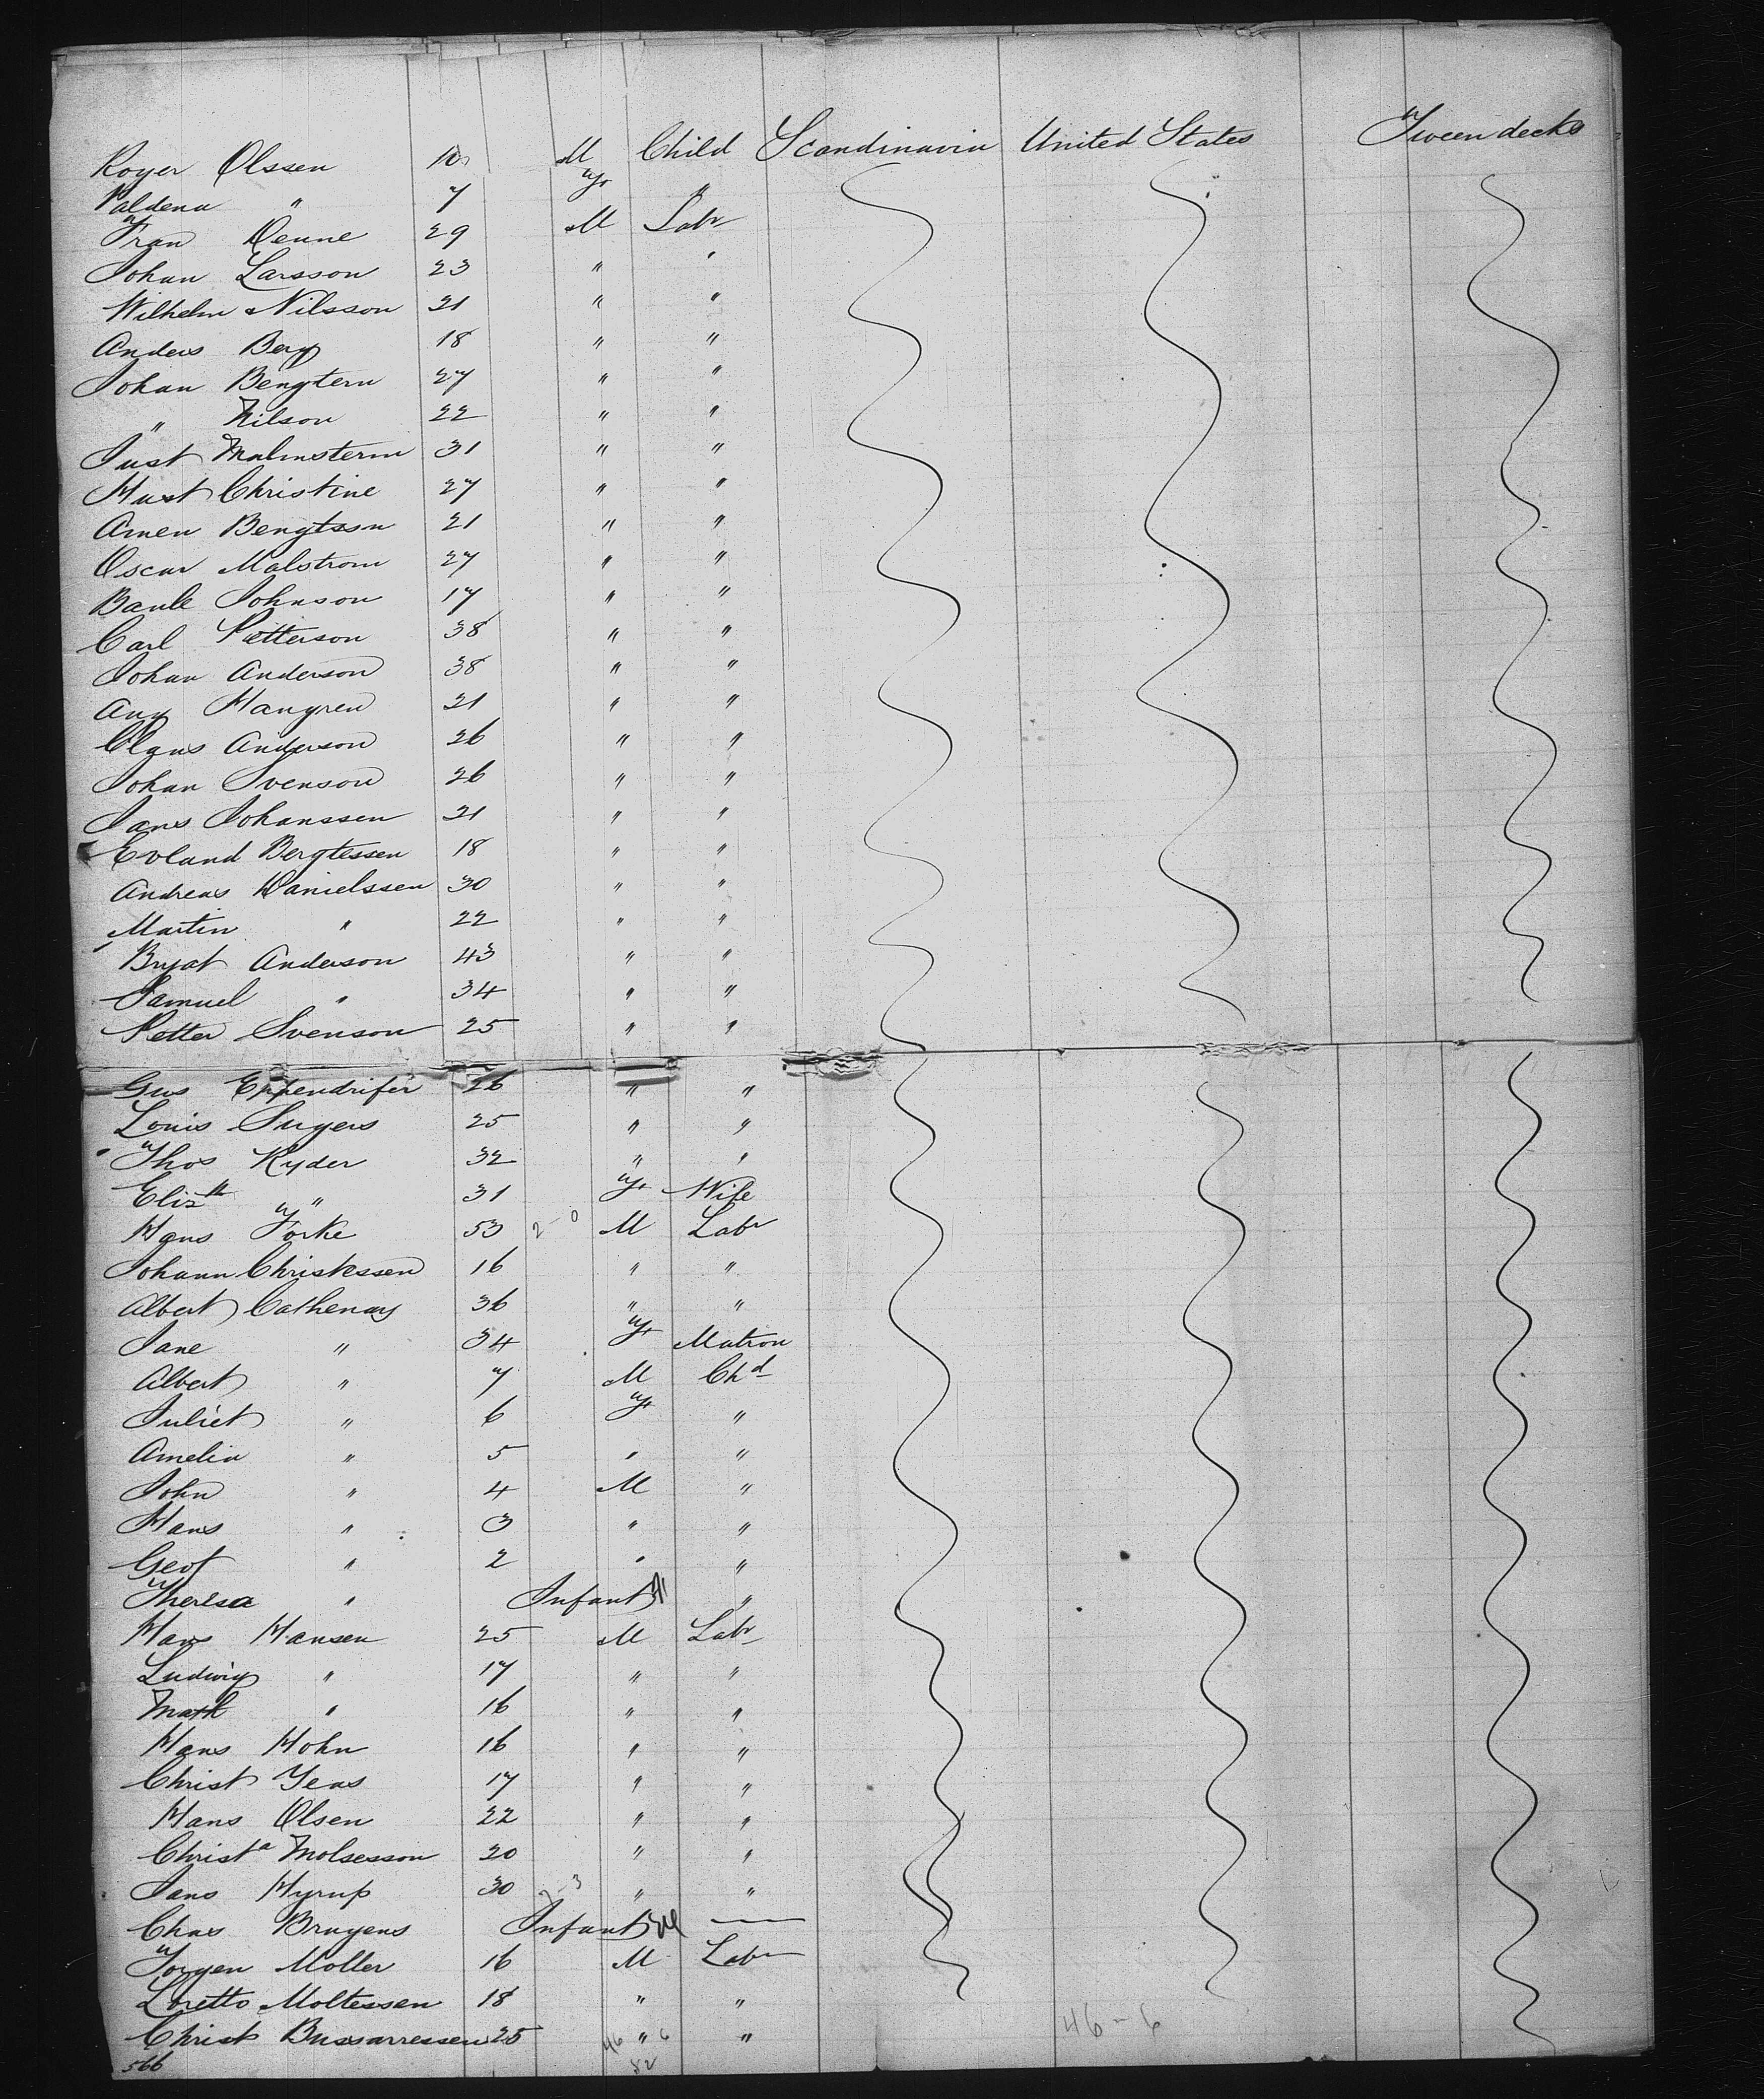 Royer Olssen 10 M Child Scandinavia United States Tween decks
Valdena " 7 F "
Fran Denne 29 M Labr
Johan Larsson 23 " "
Wilhelm Nilsson 21 " "
Anders Berg 18 " "
Johan Bengtern 27 " "
" Nilson 22 " "
Just Malmsterm 31 " "
Hust Christine 27 " "
Amen Bengtssn 21 " "
Oscar Malstrom 27 " "
Banle Johnson 17 " "
Carl Petterson 38 " "
Johan Anderson 38 " "
Aug Hangren 21 " "
Claus Anderson 26 " "
Johan Svenson 26 " "
Jans Johanssen 21 " "
Evland Bergtessen 18 " "
Andreas Danielssen 30 " "
Martin " 22 " "
Bryat Anderson 43 " "
Samuel " 34 " "
Petter Svenson 25 " "
Gus Eppendrifer 26 " "
Louis Suyers 25 " "
Thos Ryder 32 " "
Elizth " 31 F Wife
Hans Forke 53 2-0 M Labr
Johann Christessen 16 " "
Albert Cathenay 36 " "
Jane " 34 F Matron
Albert " 7 M Chd
Juliet " 6 F "
Amelia " 5 " "
John " 4 M "
Hans " 3 " "
Geot " 2 " "
Theresa " Infant "
Hans Hansen 25 M Labr
Ludwig " 17 " "
Math " 16 " "
Hans Hohn 16 " "
Christ Yeas 17 " "
Hans Olsen 22 " "
Christa Molsesson 20 " "
Jans Hyrup 30 " "
Chas Bruyens Infant M —
Jorgen Moller 16 M Labr
Loretto Moltessen 18 " "
Christ Bussarressen 25 " "
566 46 6 52 46-6